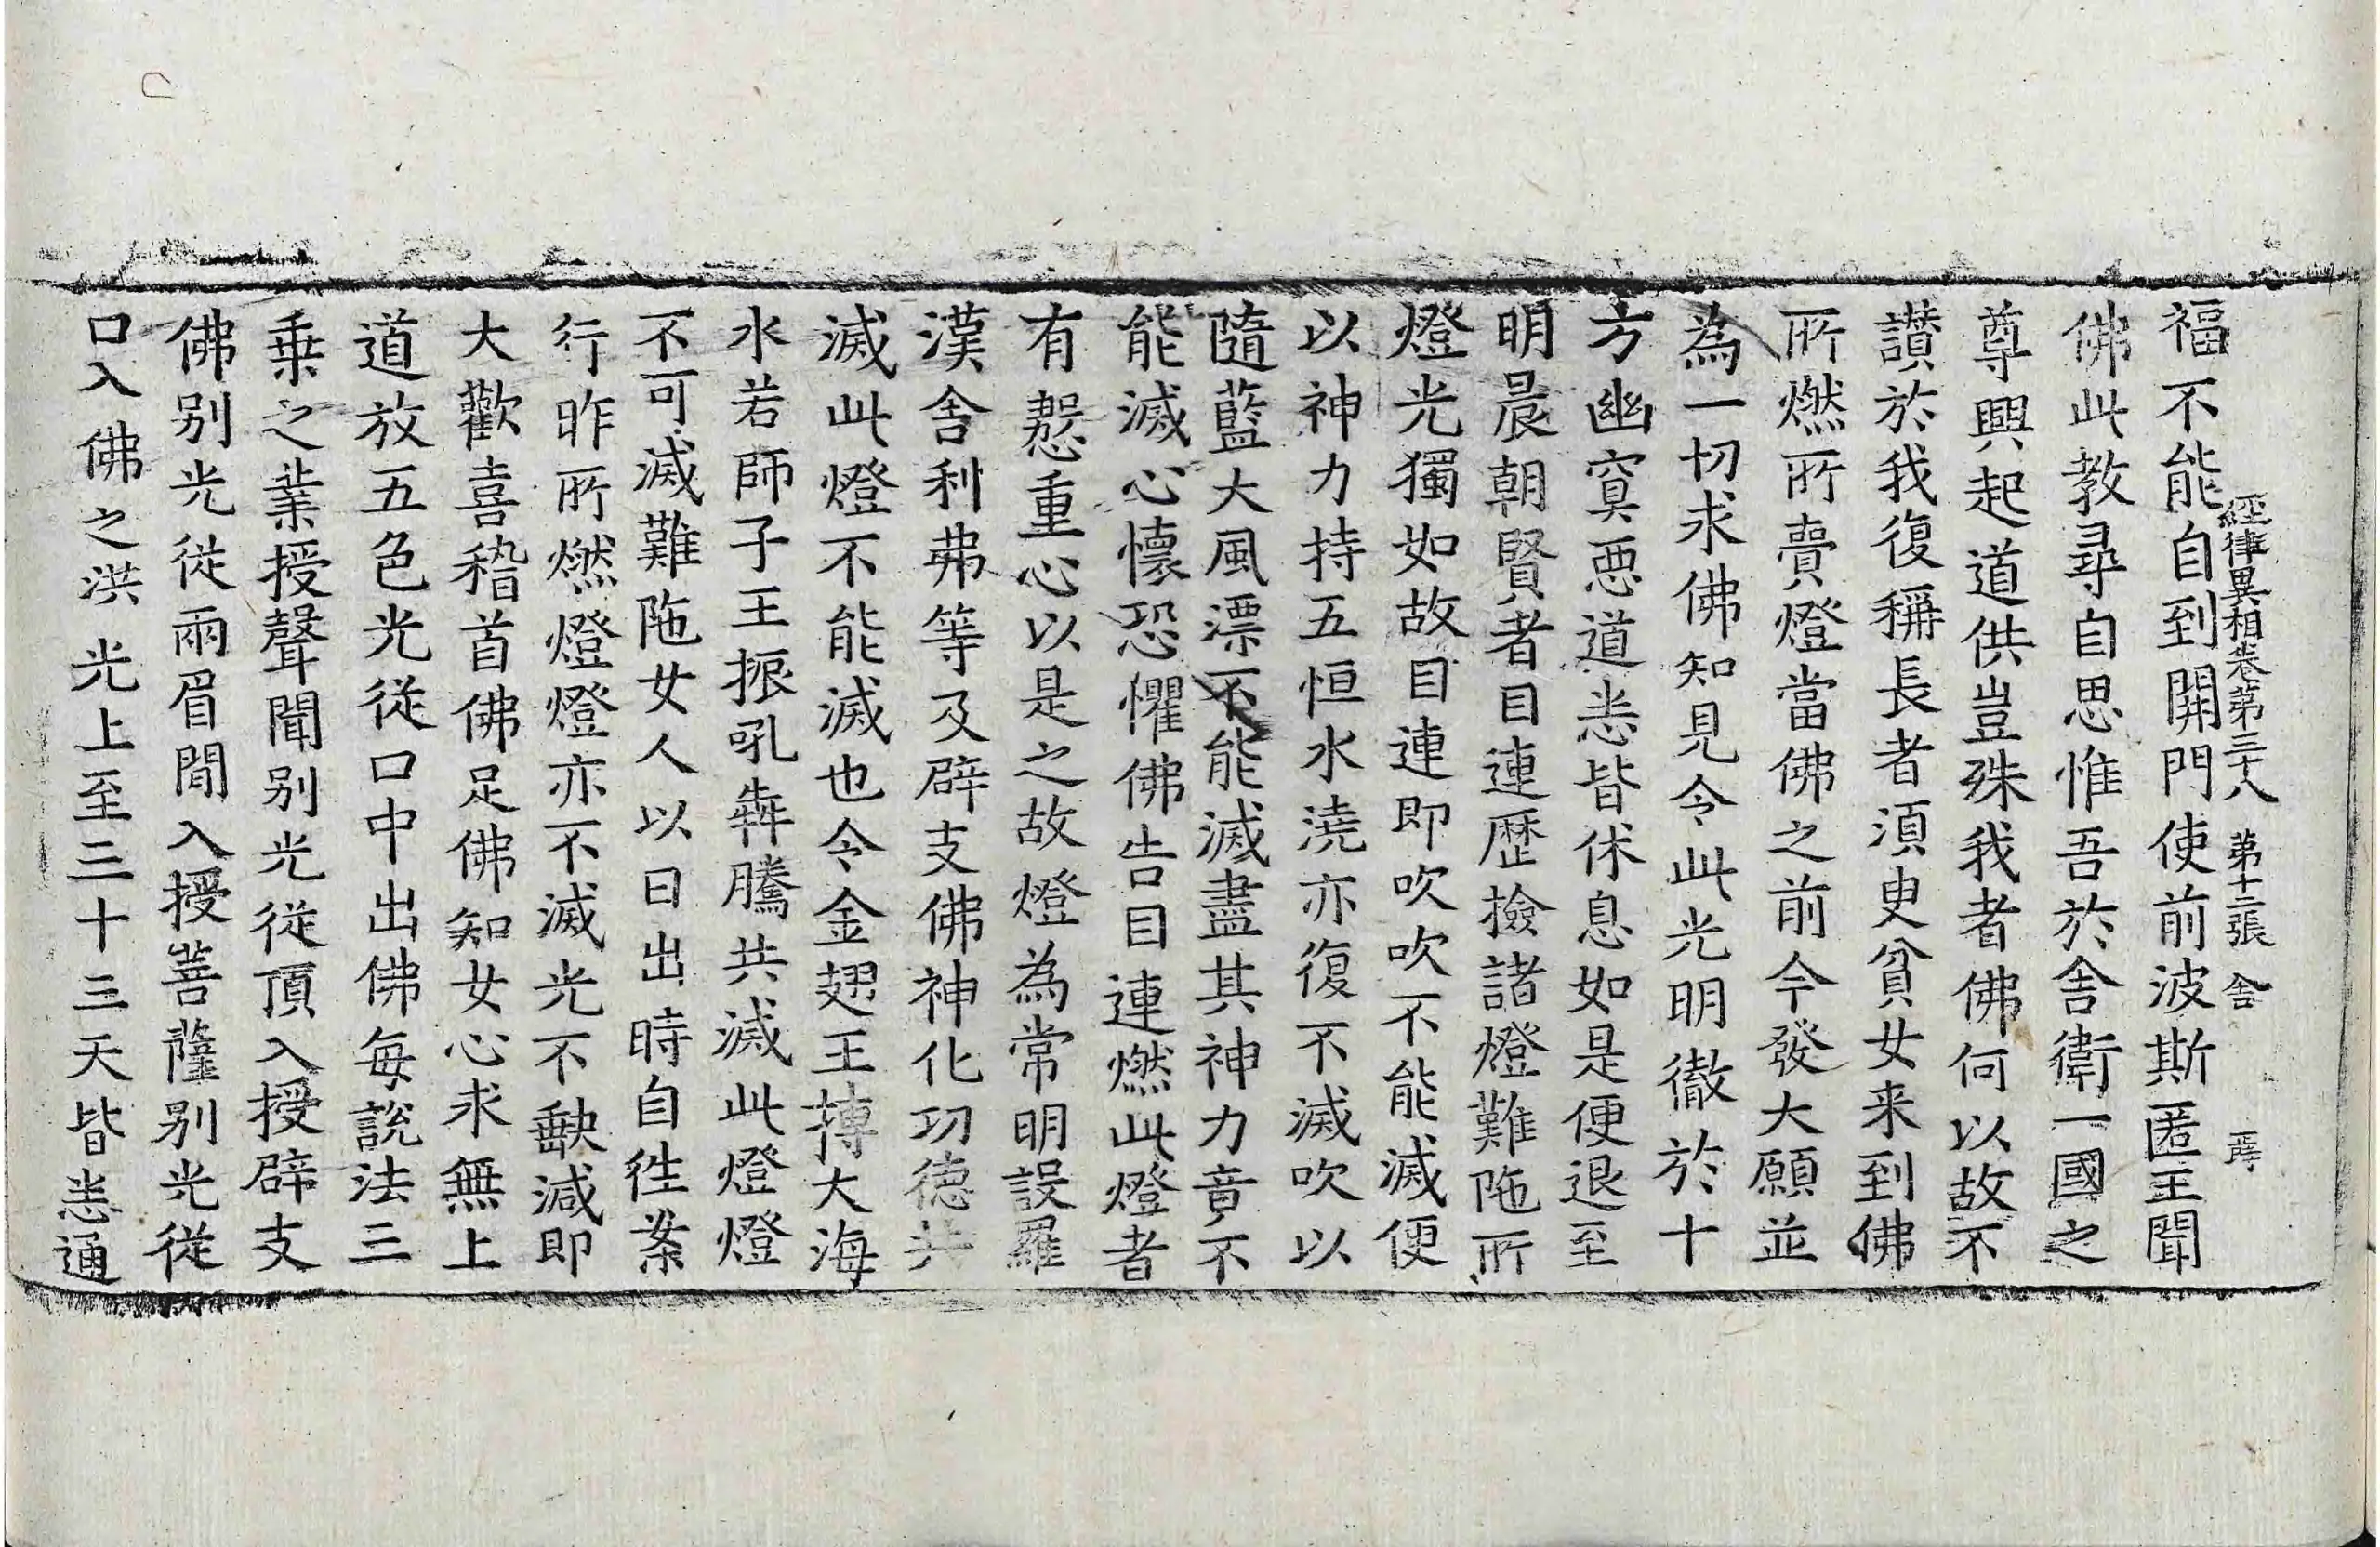 經律異相卷第三十八 第十二張 舍
福不能自到開門使前波斯匿王聞
佛此教尋自思惟吾於舍衛一國之
尊興起道供豈殊我者佛何以故不
讃於我復稱長者湏臾貧女来到佛
所燃所賣燈當佛之前今發大願並
為一切求佛知見令此光明徹於十
方幽㝠惡道悉皆休息如是便退至
明晨朝賢者目連歷撿諸燈難陁所
燈光獨如故目連即吹吹不能滅便
以神力持五恒水澆亦復不滅吹以
隨藍大風漂不能滅盡其神力音不
能滅心懷恐懼佛告目連燃此燈者
有慇重心以是之故燈為常明設羅
漢舍利弗等及辟支佛神化功德共
滅此燈不能滅也令金翅王摶大海
水若師子王振吼犇騰共滅此燈燈
不可滅難陁女人以日出時自徃案
行昨所燃燈燈亦不滅光不缺減即
大歡喜稽首佛足佛知女心求無上
道放五色光従口中出佛每説法三
乗之業授聲聞别光従頂入授辟支
佛别光従兩眉間入授菩薩别光従
口入佛之洪光上至三十三天皆悉通